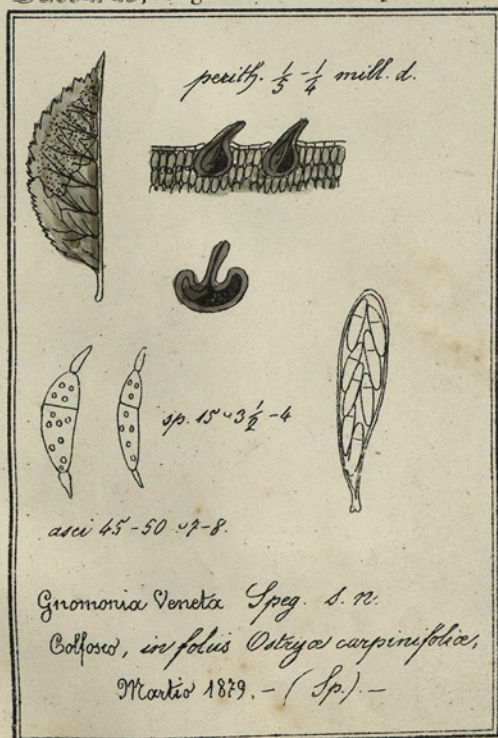 perith. 1/5 - 1/4 mill. d.
sp. 15 ⌣ 3 1/2 - 4
asci 45 - 50 ⌣ 7 - 8.
Gnomonia Veneta Speg. s. n.
Colfosco, in foliis Ostryæ carpinifoliæ,
Martio 1879. - ( Sp.). -